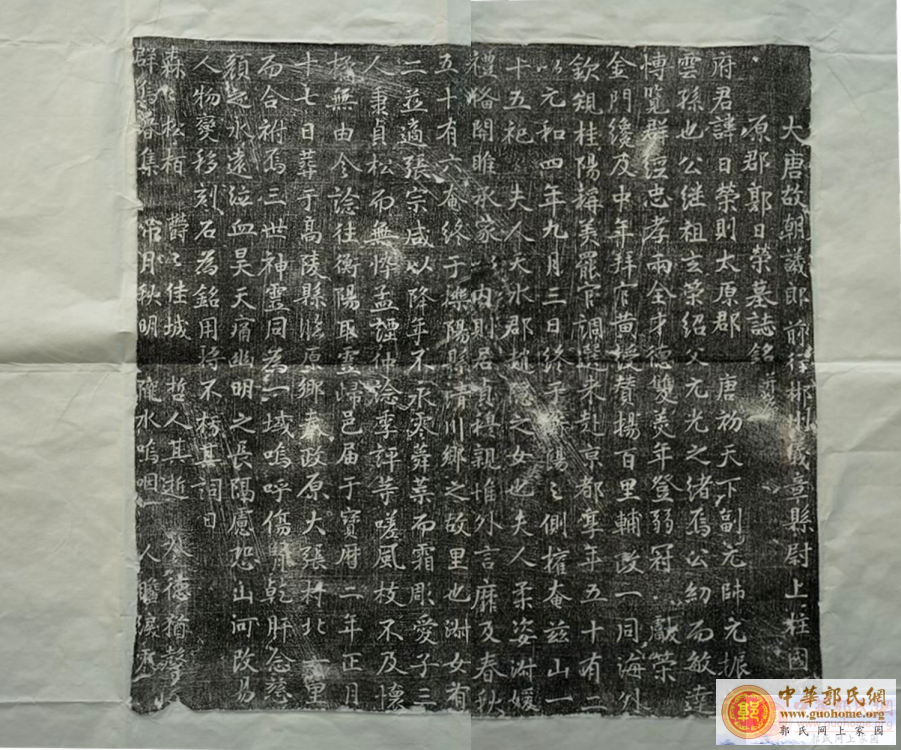 大唐故朝議郎前行郴州義章縣尉上柱國
原郡郭日榮墓誌銘并
府君諱日榮則太原郡唐初天下副元帥元振
雲孫也公継祖玄榮紹父元光之緒焉公幼而敏達
博覽群經忠孝兩全才德雙美年登弱冠獻榮
金門纔及中年拜官黃授贊揚百里輔政一同海外
欽覜桂陽稱美罷官調選来赴京都享年五十有二
以元和四年九月三日終于陽之側權奄兹山一
十五祀夫人天水郡趙之女也夫人柔姿淑媛
禮俻關睢承家以内則君貞親堆外言靡及春秋
五十有六奄終于櫟陽縣清川鄉之故里也淑女有
二並適張宗咸以降年不永蕣葉而霜彫愛子三
人秉貞松而無悴孟謹仲諗季評等嗟風枝不及懷
無由令諗往衡陽取靈歸邑届于寳曆二年正月
十七日葬于高陵縣原鄉奉政原大張村北一里
而合祔焉三世神靈同為一域嗚呼傷乹肝念慈
顏之永遠泣血昊天痛幽明之長隔慮恐山河改易
人物變移刻石為銘用将不朽其詞曰
森松栢欝佳城哲人其逝德猶馨
群鳥暮集常月秋明隴水嗚咽人
中華郭氏網
www.guohome.org
郭氏网上家园